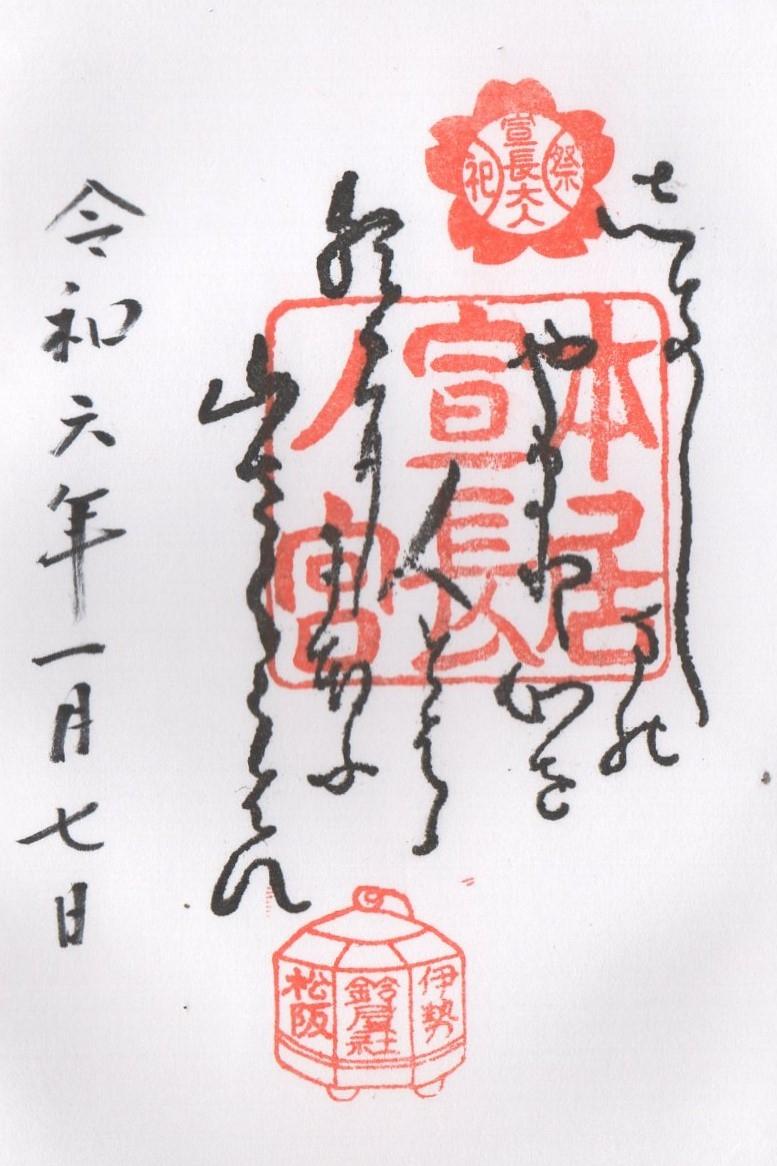 祭
宣長大人
祀
志きしまの
やまと心を
人とはゝ
朝日に
にほふ
山さくらはな
本居
宣長
ノ宮
伊勢
鈴屋社
松阪
令和六年一月七日